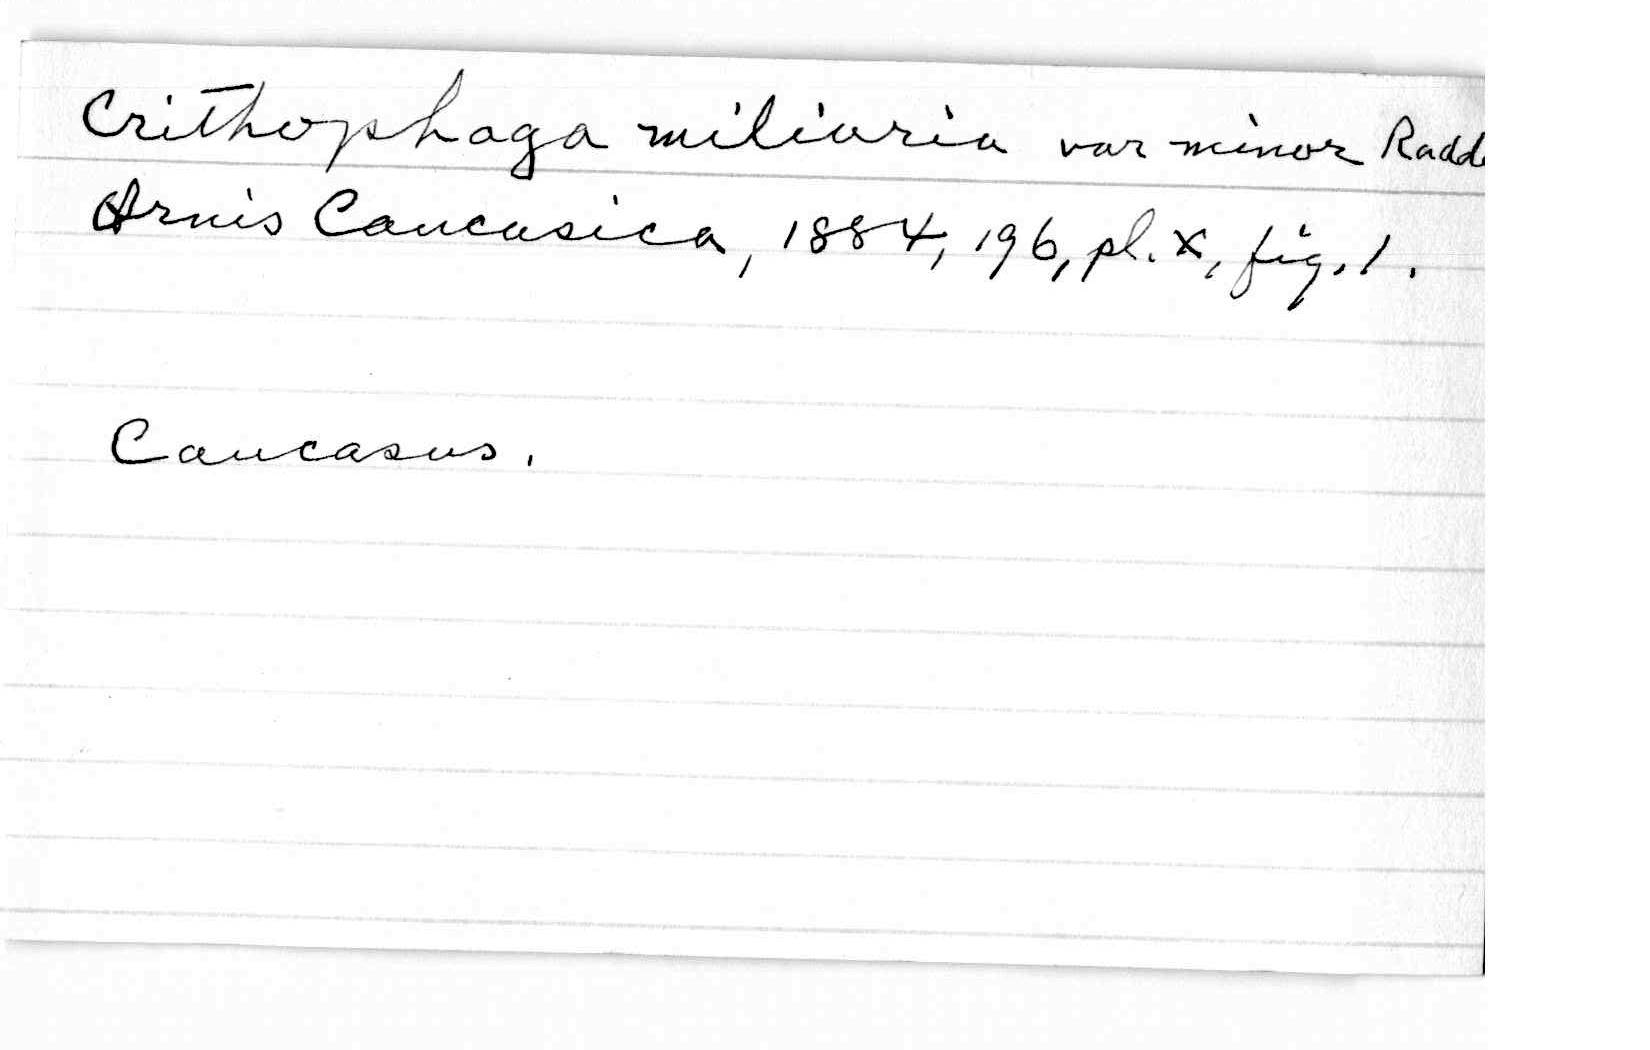 Crithophaga miliaria var minor Radd
Ornis Caucasica, 1884, 196, pl. X, fig. 1.
Caucasus.